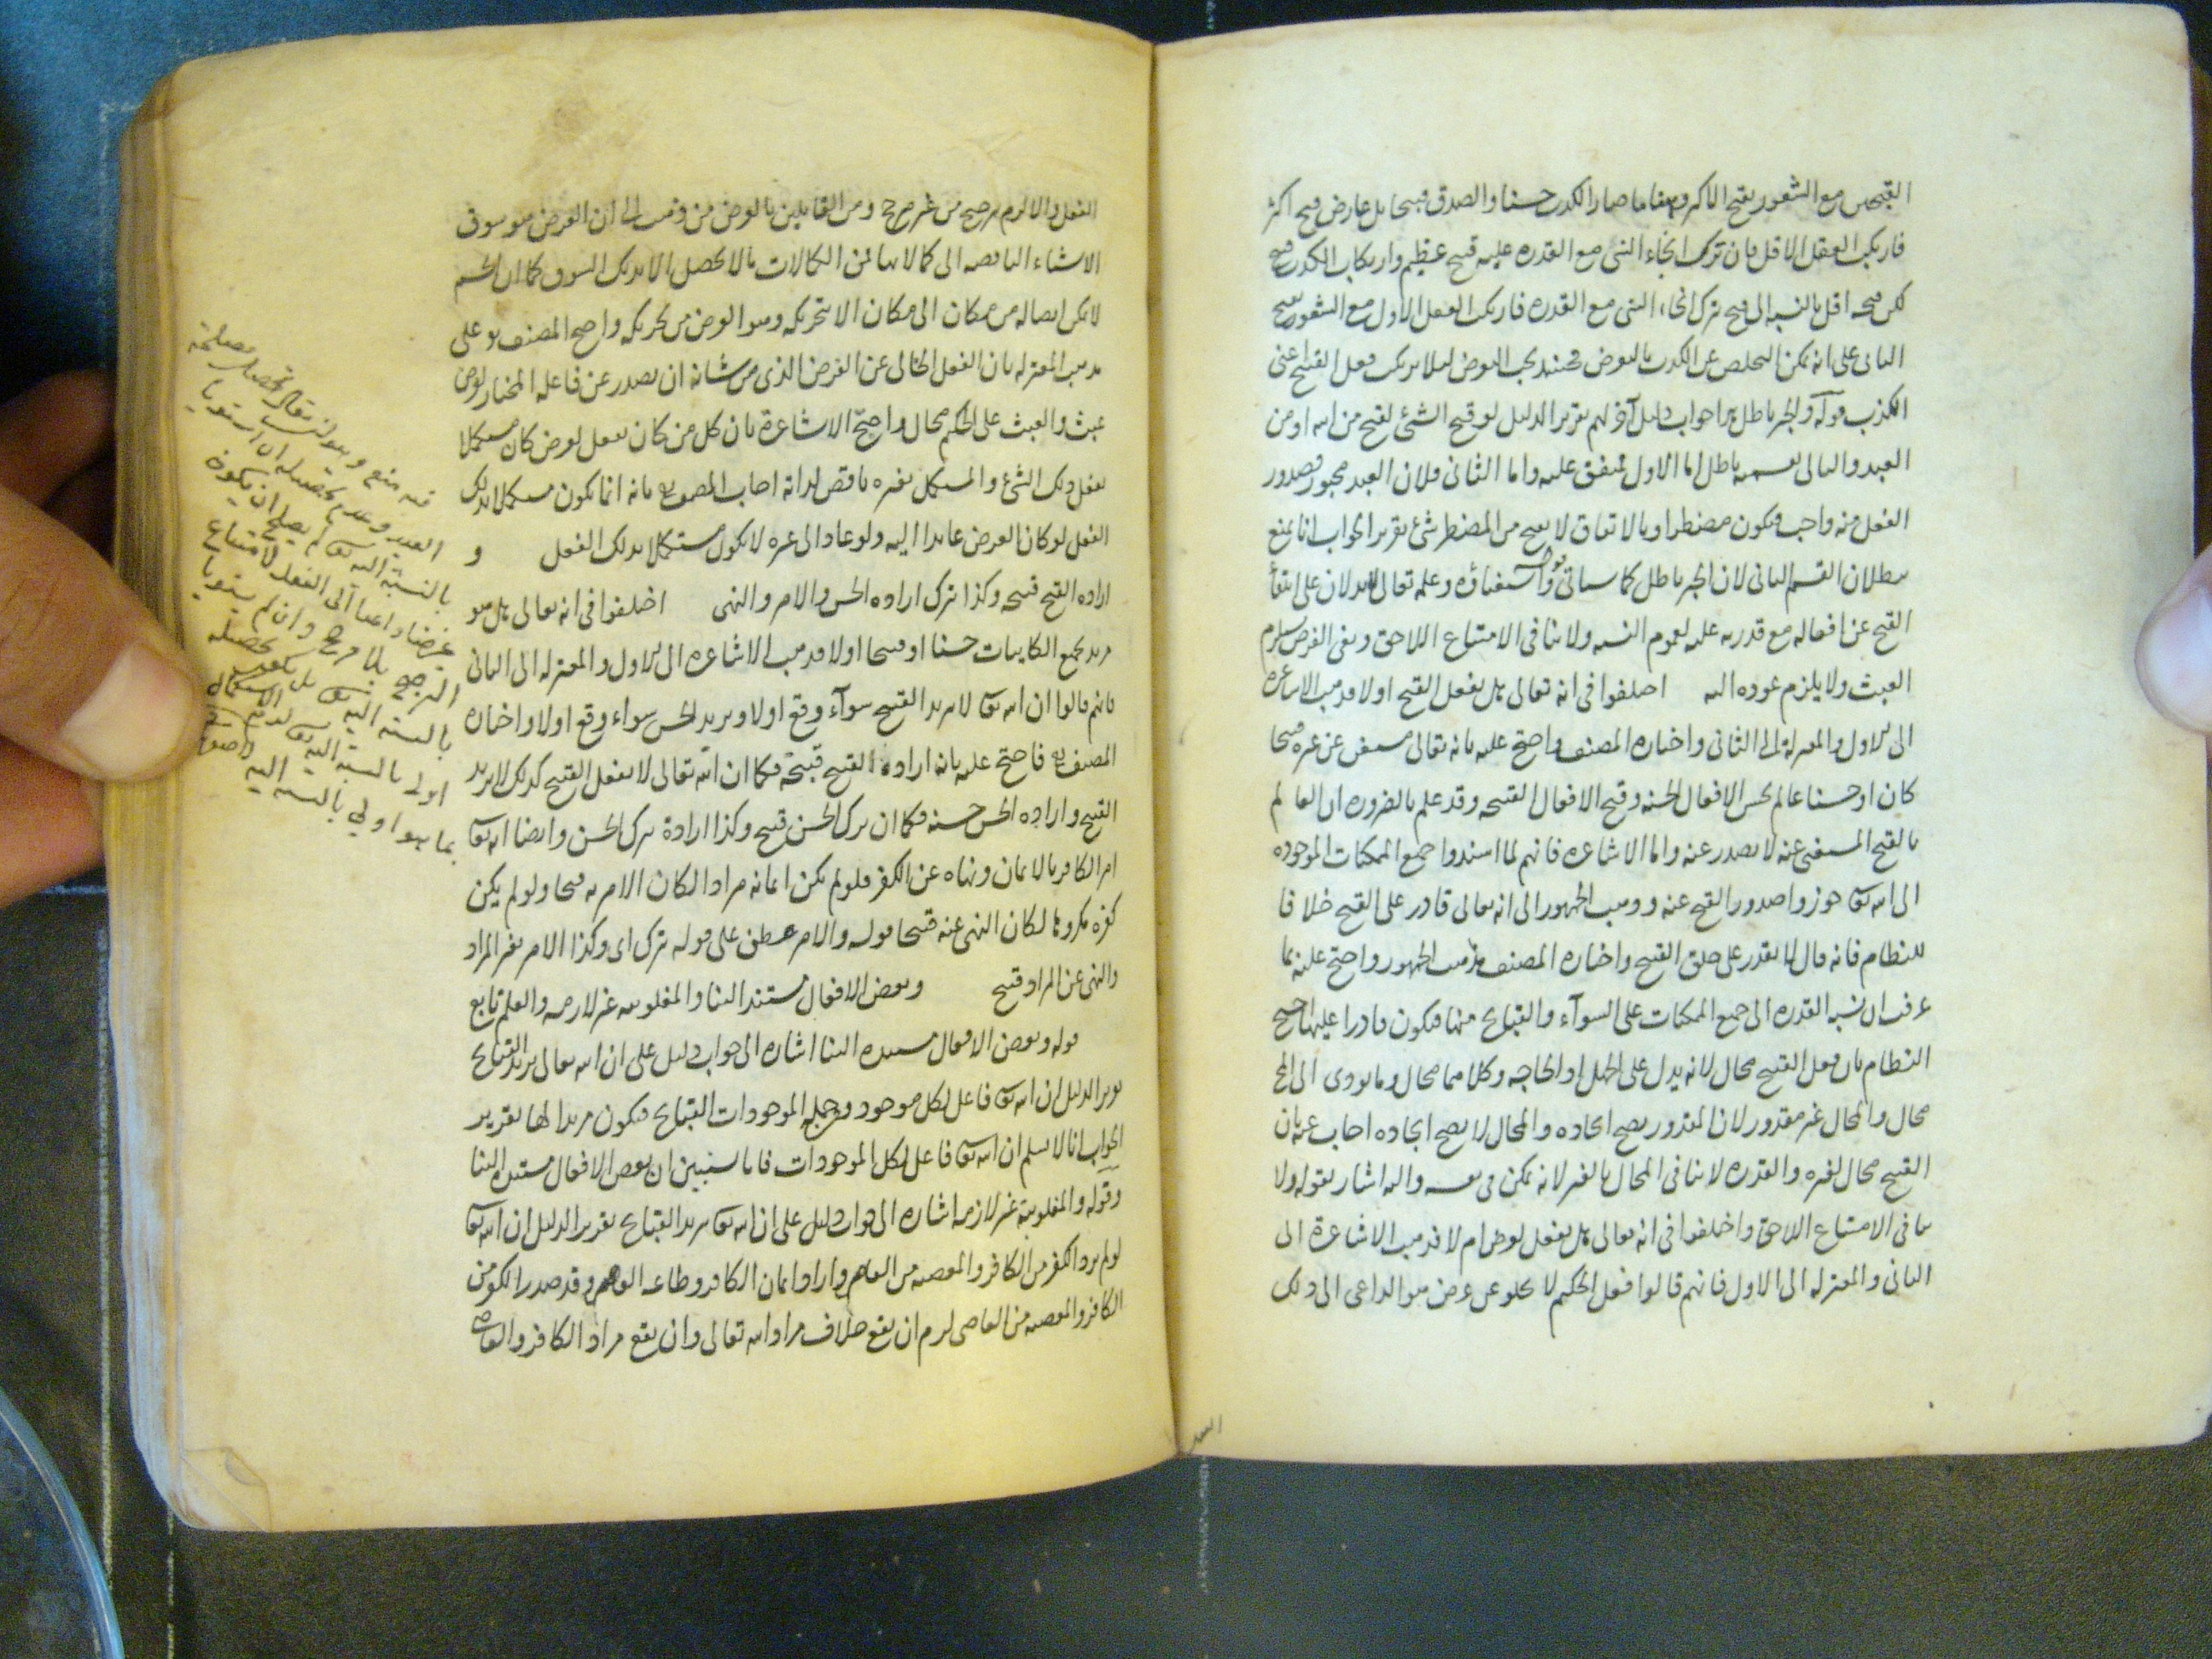 القبيحين مع الشعور بقبح الاكبر وههنا ما صار الكذب حسنا والصدق قبيحا بل عارض قبح اكثر
فارتكب العقل الاقل فان ترك انجاء النبى مع القدره عليه قبيح عظيم وارتكاب الكذب قبيح
لكن قبحه اقل بالنسبه الى قبح ترك انجاء النبى مع القدره فارتكب العقل الاول مع الشعور بقبح
الثانى على انه يمكن التخلص عن الكذب بالتعريض فحينئذ يجب التعريض لئلا يرتكب فعل القبيح اعنى
الكذب قوله والجبر باطل هذا جواب دليل آخر لهم تقرير الدليل لو قبح الشئ لقبح من الله او من
العبد والتالى بقسميه باطل اما الاول فمتفق عليه واما الثانى فلان العبد مجبور فصدور
الفعل منه واجب فيكون مضطرا وبالاتفاق لا يقبح من المضطر شئ تقرير الجواب انا نمنع
بطلان القسم الثانى لان الجبر باطل كما سياتى قوله واستغناؤه وعلمه تعالى يدلان على انتفاء
القبح عن افعاله مع قدرته عليه لعموم النسبه ولا ينافى الامتناع اللاحق ونفى الغرض يستلزم
العبث ولا يلزم عوده اليه اختلفوا فى انه تعالى هل يفعل القبيح او لا فذهب الاشاعره
الى الاول والمعتزله الى الثانى واختاره المصنف واحتج عليه بانه تعالى مستغن عن غيره قبيحا
كان او حسنا عالم بحسن الافعال الحسنه وقبح الافعال القبيحه وقد علم بالضروره ان العالم
بالقبح المستغنى عنه لا يصدر عنه واما الاشاعره فانهم لما اسندوا جميع الممكنات الموجوده
الى الله تعالى جوزوا صدور القبيح عنه وذهب الجمهور الى انه تعالى قادر على القبيح خلافا
للنظام فانه قال لا يقدر على خلق القبيح واختاره المصنف مذهب الجمهور واحتج عليه بما
عرفت ان نسبه القدره الى جميع الممكنات على السوآء والقبايح منها فيكون قادرا عليها احتج
النظام بان فعل القبيح محال لانه يدل على الجهل او الحاجه وكلاهما محال وما يودى الى المح
محال والمحال غير مقدور لان المقدور يصح ايجاده والمحال لا يصح ايجاده اجاب عنه بان
القبيح محال لغيره والقدره لا تنافى المحال بالغير لانه ممكن فى نفسه واليه اشار بقوله ولا
ينافى الامتناع اللاحق واختلفوا فى انه تعالى هل يفعل لغرض ام لا فذهب الاشاعرة الى
الثانى والمعتزله الى الاول فانهم قالوا فعل الحكيم لا يخلو عن غرض هو الداعى الى ذلك
الفعل والا لزم ترجيح من غير مرجح ومن القايلين بالغرض من ذهب الى ان الغرض هو سوق
الاشياء الناقصه الى كمالاتها فمن الكمالات ما لا يحصل الا بذلك السوق كما ان الجسم
لا يمكن ايصاله من مكان الى مكان الا بتحريكه وهو الغرض من تحريكه واحتج المصنف ره على
مذهب المعتزله بان الفعل الخالى عن الغرض الذى من شانه ان يصدر عن فاعله المختار لغرض
عبث والعبث على الحكيم محال واحتج الاشاعرة بان كل من كان يفعل لغرض كان مستكملا
بفعل ذلك الشئ والمستكمل بغيره ناقص لذاته اجاب المصنف ره بانه انما يكون مستكملا بذلك
الفعل لو كان الغرض عايدا اليه ولو عاد الى غيره لا يكون مستكملا بذلك الفعل و
اراده القبيح قبيحه وكذا ترك اراده الحسن والامر والنهى اختلفوا فى انه تعالى هل هو
مريد لجميع الكاينات حسنا او قبيحا او لا فذهب الاشاعره الى الاول والمعتزله الى الثانى
فانهم قالوا ان الله تعالى لا يريد القبيح سوآء وقع او لا ويريد الحسن سواء وقع او لا واختاره
المصنف ره فاحتج عليه بانه اراده القبيح قبيحة فكما ان الله تعالى لا يفعل القبيح كذلك لا يريد
القبيح واراده الحسن حسنه فكما ان ترك الحسن قبيح وكذا ارادة ترك الحسن وايضا الله تعالى
امر الكافر بالايمان ونهاه عن الكفر فلو لم يكن ايمانه مرادا لكان الامر به قبيحا ولو لم يكن
كفره مكروها لكان النهى عنه قبيحا قوله والامر عطف على قوله ترك اى وكذا الامر بغير المراد
والنهى عن المراد قبيح وبعض الافعال مستند الينا والمغلوبيه غير لازمه والعلم تابع
قوله وبعض الافعال مستنده الينا اشاره الى جواب دليل على ان الله تعالى يريد القبايح
تقرير الدليل ان الله تعالى فاعل لكل موجود ومن جمله الموجودات القبايح فيكون مريدا لها تقرير
الجواب انا لا نسلم ان الله تعالى فاعل لكل الموجودات فانا سنبين ان بعض الافعال مستنده الينا
وقوله والمغلوبية غير لازمه اشاره الى جواب دليل على ان الله تعالى يريد القبايح تقرير الدليل ان الله تعالى
لو لم يرد الكفر من الكافر والمعصيه من العاصى واراد ايمان الكافر وطاعه العاصى وقد صدر الكفر من
الكافر والمعصيه من العاصى لزم ان يقع خلاف مراد الله تعالى وان يقع مراد الكافر والعاصى
فيه منع وهو ان يقال تحصيل مصلحة
العبد وعدم تحصيله ان استويا
بالنسبة اليه تعالى لم يصلح ان يكون
غرضا داعيا الى الفعل لامتناع
الترجيح بلا مرجح وان لم يستويا
بالنسبة اليه تعالى بل يكون تحصيله
اولى بالنسبة اليه تعالى لزم الاستكمال
بما هو اولى بالنسبه اليه